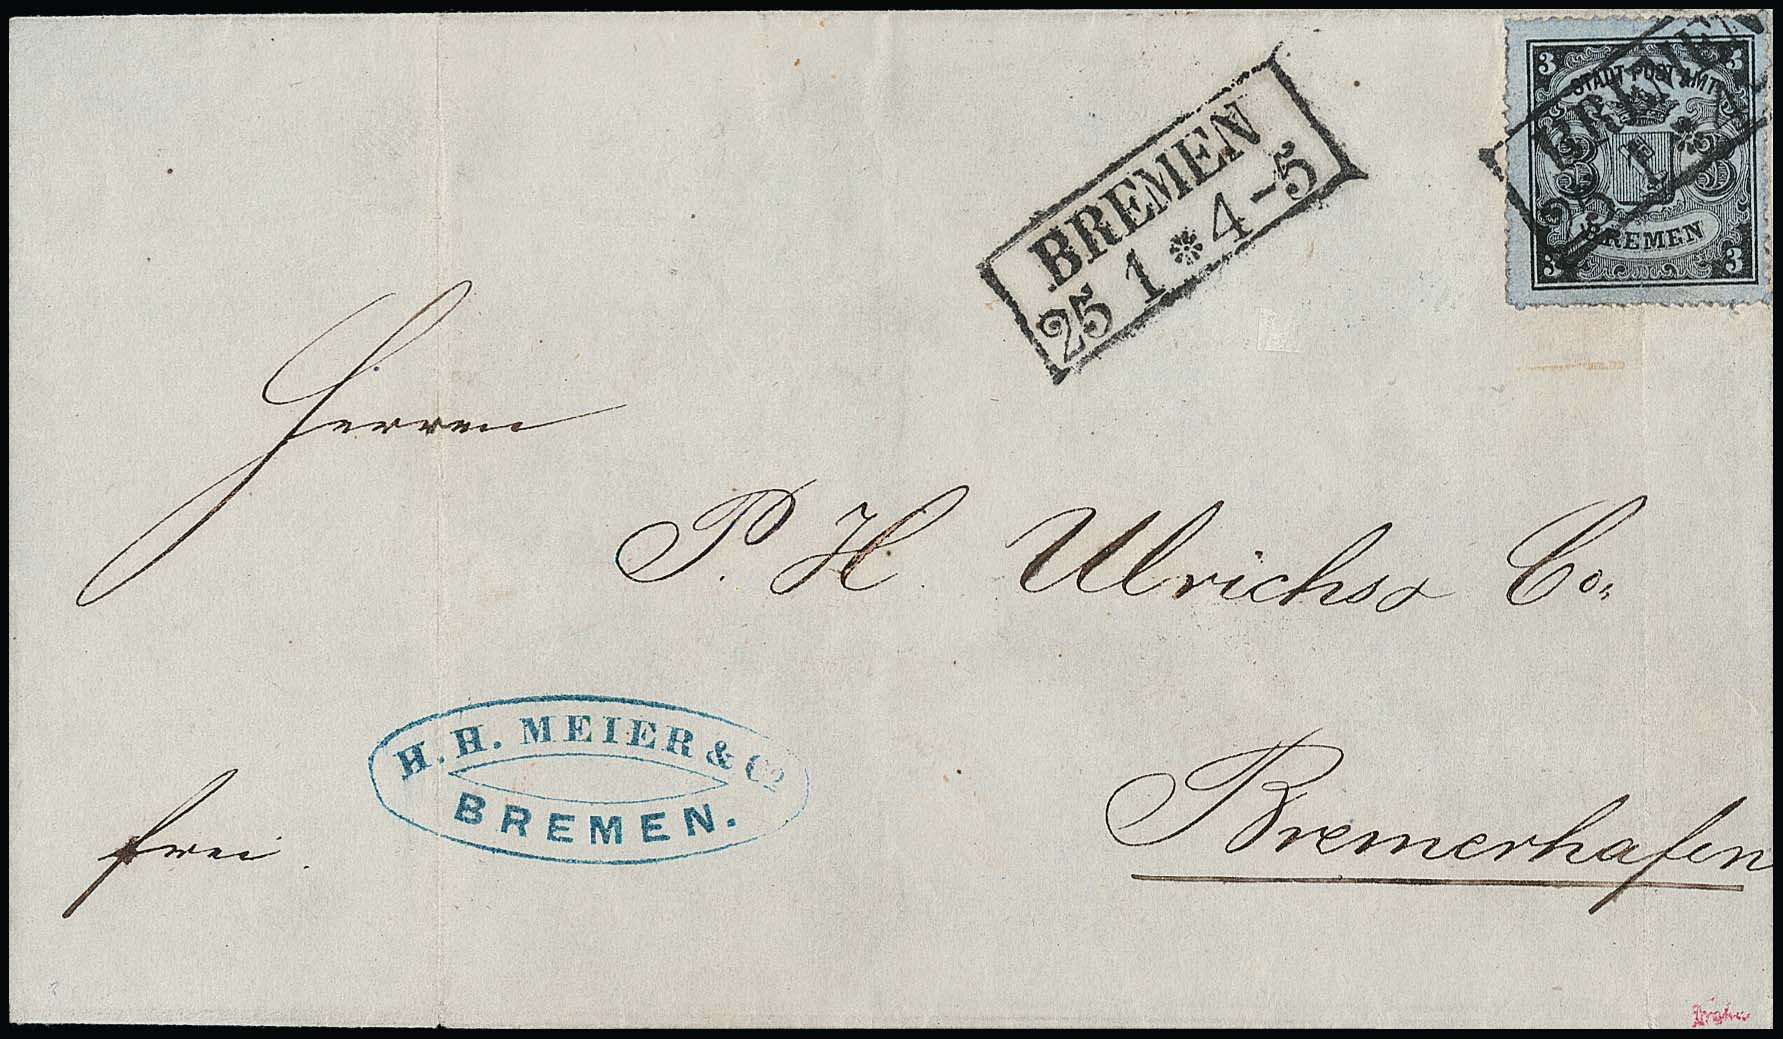 BREMEN
25 1 * 4-5
3 3
STADT POST AMT
3 3
BREMEN
3 3
BREMEN
25 1 *
Herren
P. H. Ulrichs & Co.
H. H. MEIER & Co
BREMEN.
frei.
Bremerhafen